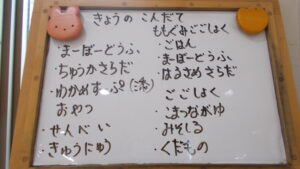 きょうの こんだて
・まーぼーどうふ
・ちゅうかさらだ
・わかめすーぷ
おやつ
・せんべい
・ぎゅうにゅう
ももぐみごごしょく
・ごはん
・まーぼーどうふ
・はるさめさらだ
ごごしょく
・こまつながゆ
・みそしる
・くだもの